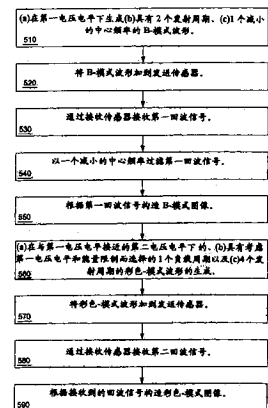 (a)在第一电压电平下生成(b)具有2个发射周期、(c)1个减小
的中心频率的B-模式波形。
510
将B-模式波形加到发送传感器。
520
通过接收传感器接收第一回波信号。
530
以一个减小的中心频率过滤第一回波信号。
540
根据第一回波信号构造B-模式图像。
550
(a)在与第一电压电平接近的第二电压电平下的、(b)具有考虑
第一电压电平和能量限制而选择的1个负载周期以及(c)4个发
射周期的彩色-模式波形的生成。
560
将彩色-模式波形加到发送传感器。
570
通过接收传感器接收第二回波信号。
580
根据接收到的回波信号构造彩色-模式图像。
590